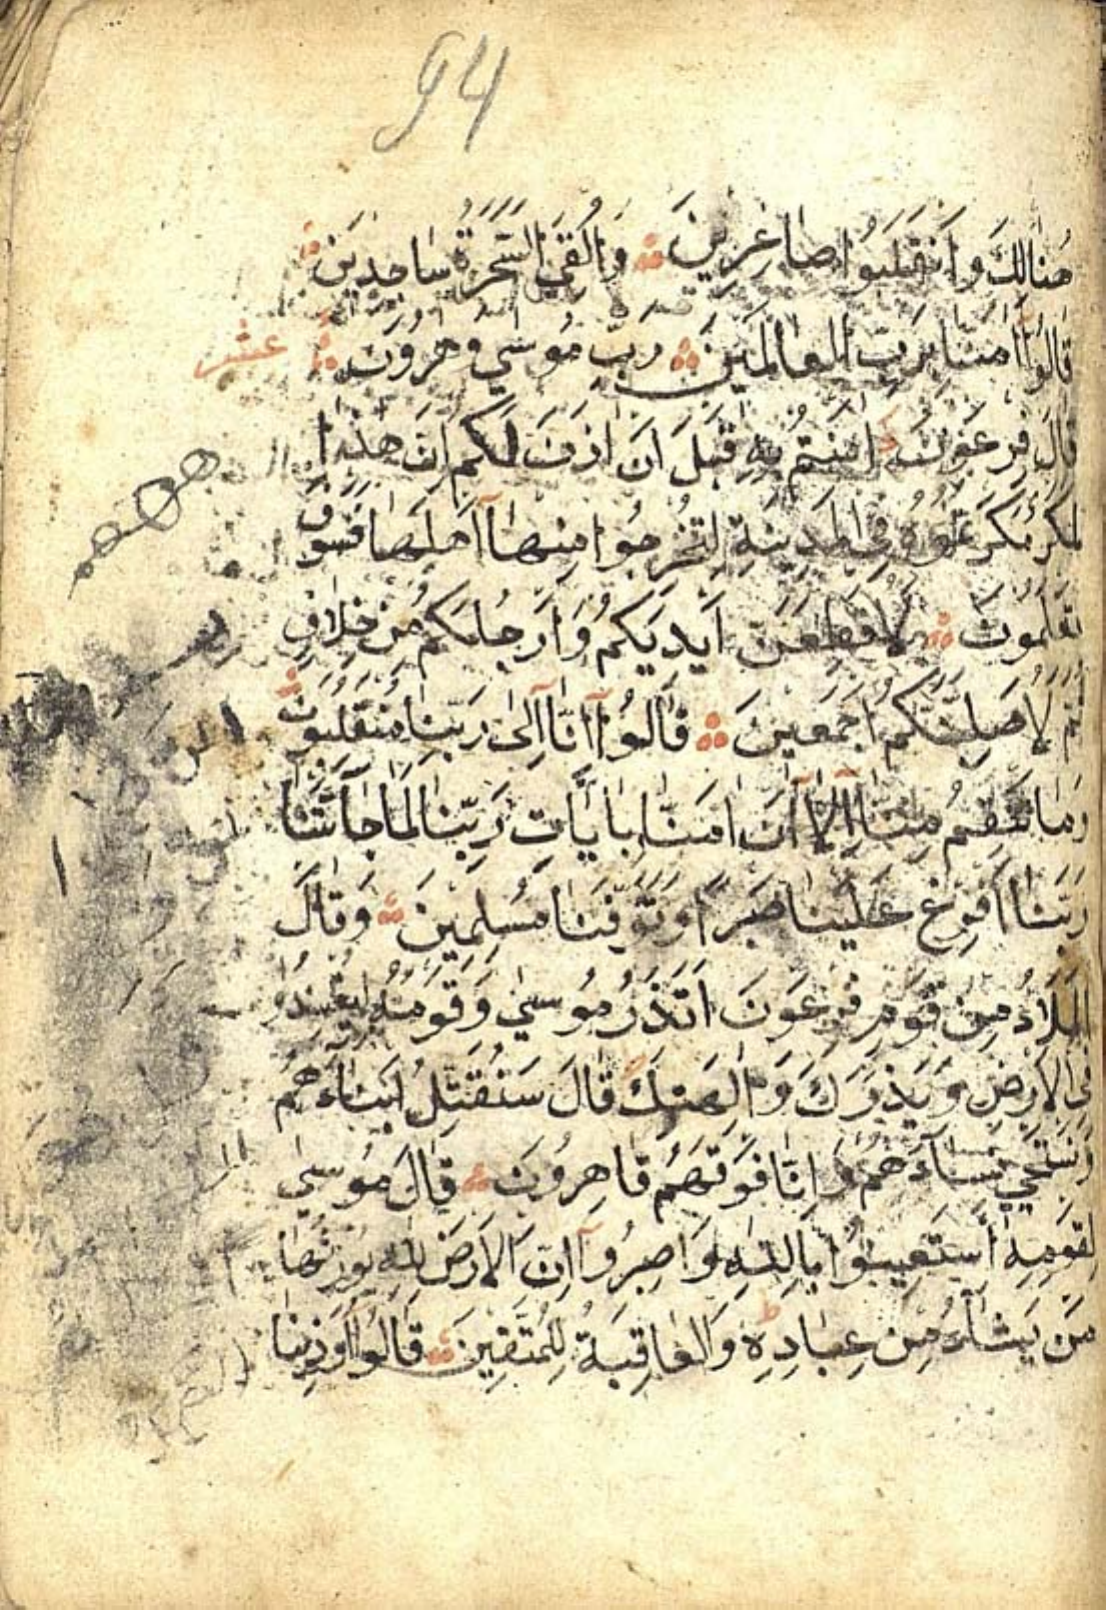 94
هنالك وانقلبوا صاغرين والقي السحرة ساجدين
قالوا امنا برب العالمين رب موسي وهرون عشر
قال فرعون امنتم به قبل ان اذن لكم ان هذا
لمكر مكرتموه في المدينة لتخرجوا منها اهلها فسوف
تعلمون لاقطعن ايديكم وارجلكم من خلاف
ثم لاصلبنكم اجمعين قالوا انا الى ربنا منقلبون
وما تنقم منا الا ان امنا بايات ربنا لما جاءتنا
ربنا افرغ علينا صبرا وتوفنا مسلمين وقال
الملاء من قوم فرعون اتذر موسى وقومه ليفسدوا
في الارض ويذرك والهتك قال سنقتل ابناءهم
ونستحي نساءهم وانا فوقهم قاهرون قال موسى
لقومه استعينوا بالله واصبروا ان الارض لله يورثها
من يشاء من عباده ط والعاقبة للمتقين قالوا اوذينا